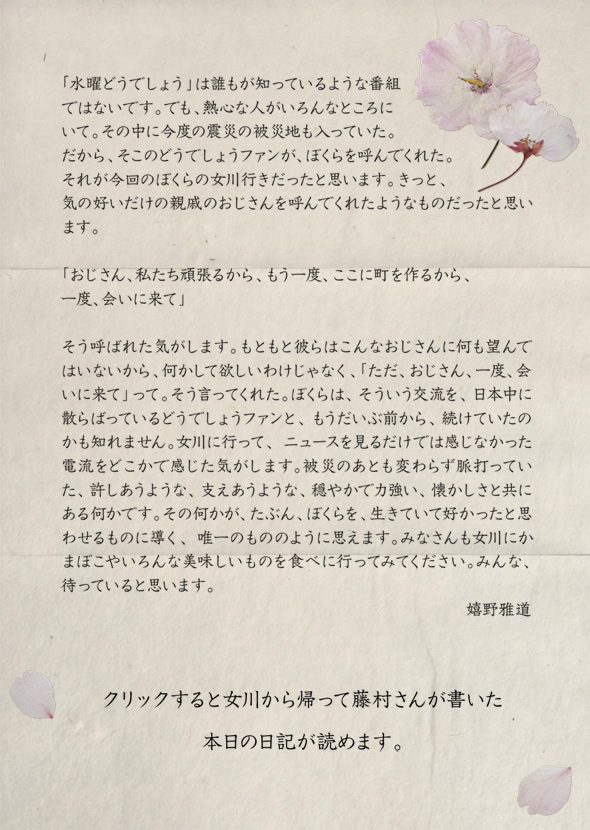 「水曜どうでしょう」は誰もが知っているような番組
ではないです。でも、熱心な人がいろんなところに
いて。その中に今度の震災の被災地も入っていた。
だから、そこのどうでしょうファンが、ぼくらを呼んでくれた。
それが今回のぼくらの女川行きだったと思います。きっと、
気の好いだけの親戚のおじさんを呼んでくれたようなものだったと思い
ます。
「おじさん、私たち頑張るから、もう一度、ここに町を作るから、
一度、会いに来て」
そう呼ばれた気がします。もともと彼らはこんなおじさんに何も望んで
はいないから、何かして欲しいわけじゃなく、「ただ、おじさん、一度、会
いに来て」って。そう言ってくれた。ぼくらは、そういう交流を、日本中に
散らばっているどうでしょうファンと、もうだいぶ前から、続けていたの
かも知れません。女川に行って、 ニュースを見るだけでは感じなかった
電流をどこかで感じた気がします。被災のあとも変わらず脈打ってい
た、許しあうような、支えあうような、穏やかで力強い、懐かしさと共に
ある何かです。その何かが、たぶん、ぼくらを、生きていて好かったと思
わせるものに導く、 唯一のもののように思えます。みなさんも女川にか
まぼこやいろんな美味しいものを食べに行ってみてください。みんな、
待っていると思います。
嬉野雅道
クリックすると女川から帰って藤村さんが書いた
本日の日記が読めます。